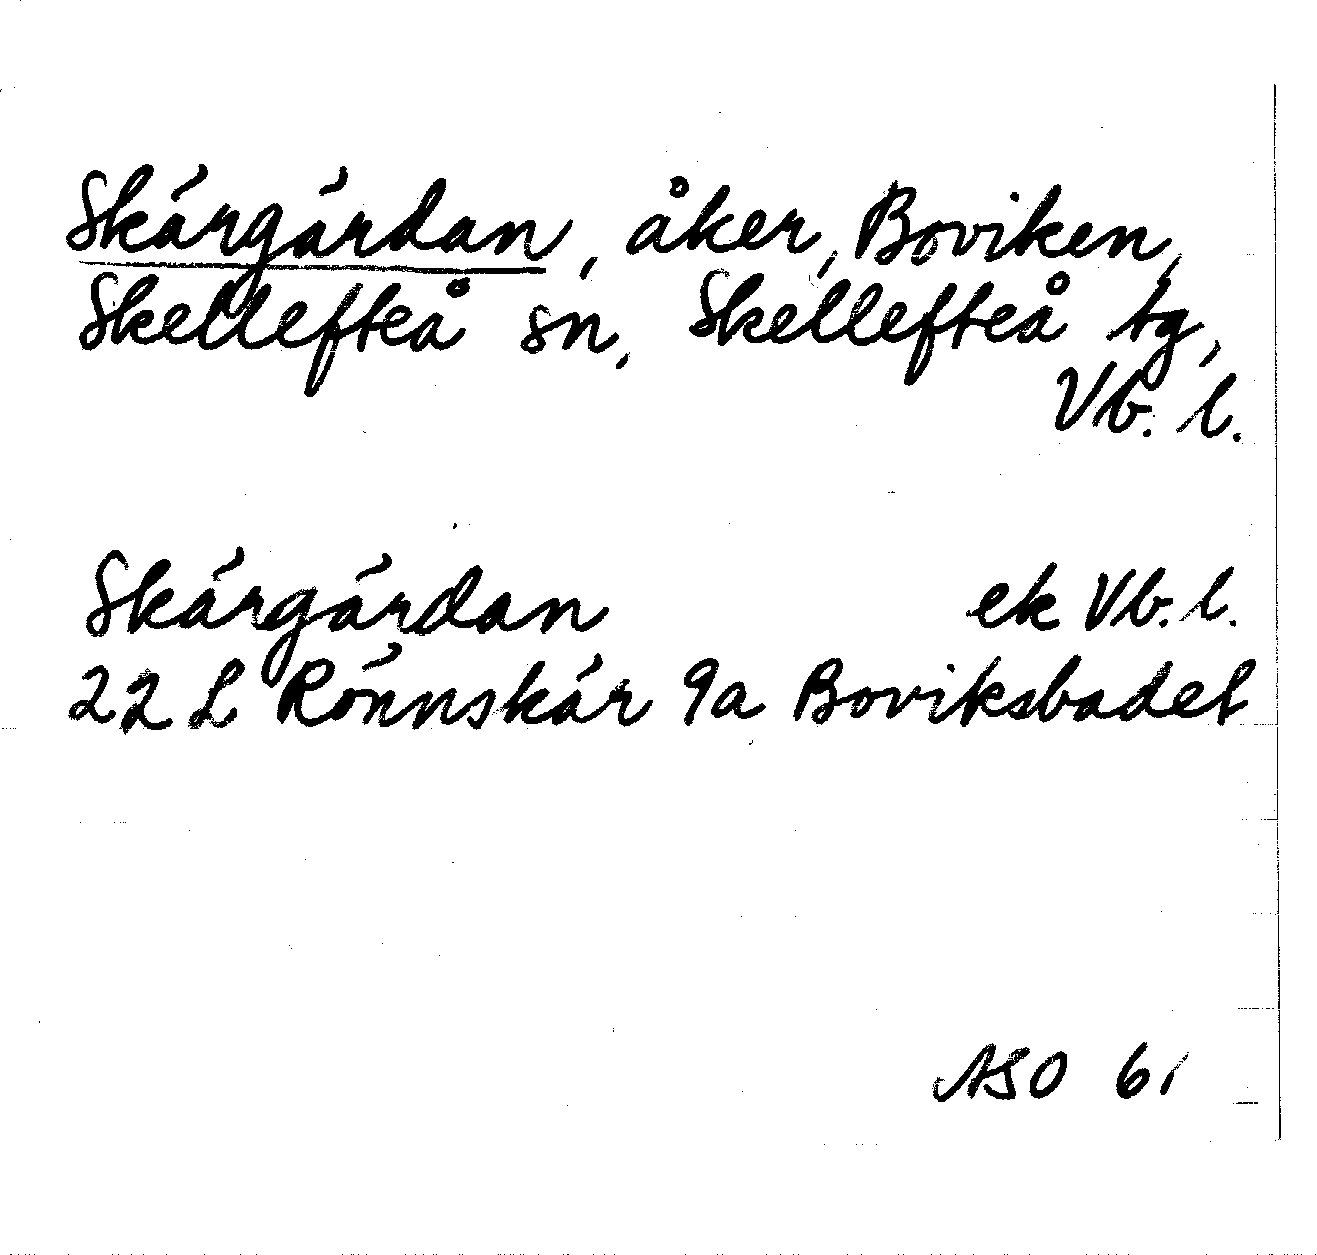 Skärgärdan, åker, Boviken,
Skellefteå sn, Skellefteå tg,
Vb. l.
Skärgärdan ek Vb. l.
22 L Rönnskär 9a Boviksbadet
ASO 61